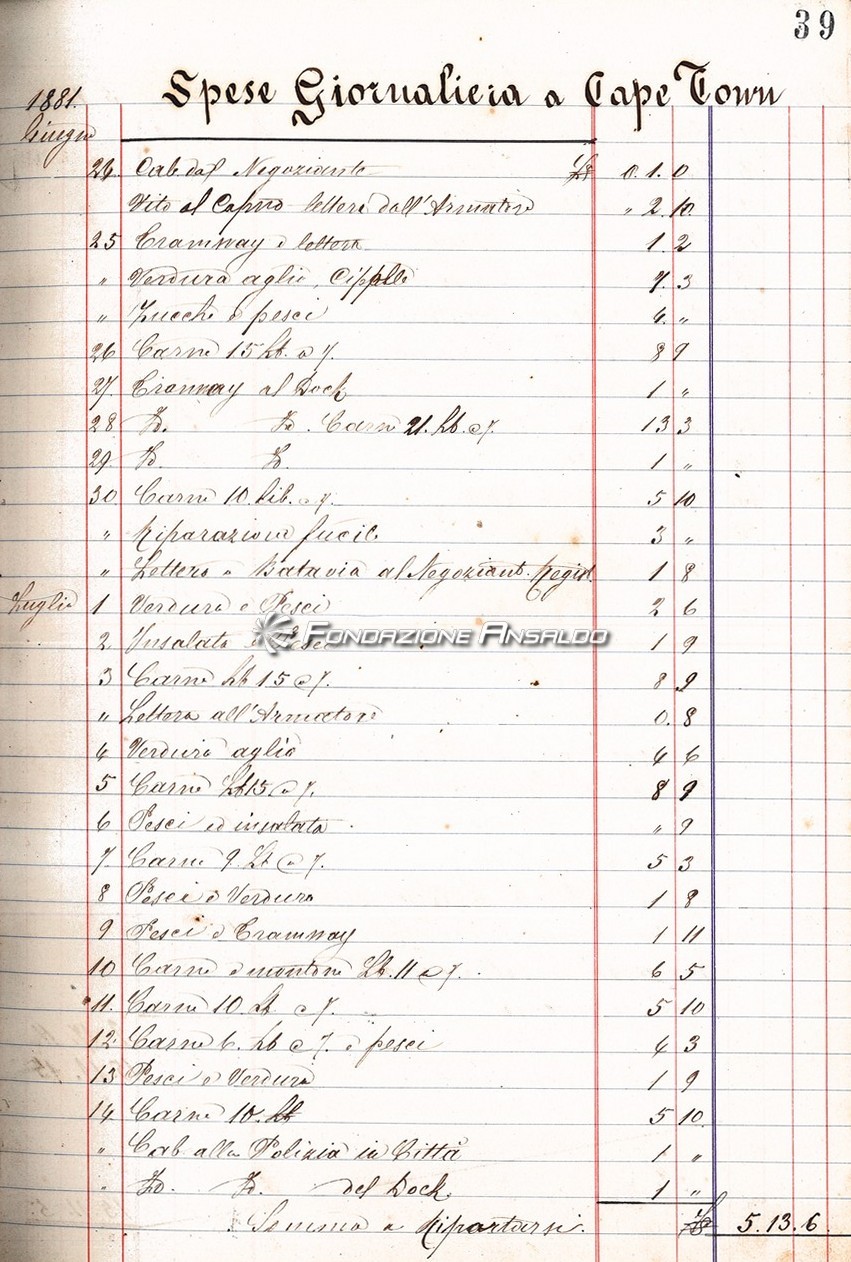 39
Spese Giornaliera a Cape Town
1881.
Giugno
24. Cab dal Negoziante £ 0. 1. 0
Vito al Capno lettera dall'Armatore " 2. 10.
25 Tramway e lettera 1. 2
" Verdura aglio, Cipolle 7. 3
" Zucche e pesci 4. "
26 Carne 15 Lb. a 7. 8 9
27. Tramway al Dock 1 "
28 Id. Id. Carne 21. Lb. a 7. 13 3
29. Id. Id. 1 "
30. Carne 10. Lib. a 7. 5 10
" Riparazione fucile 3 "
" Lettera a Batavia al Negoziant. Regist. 1 8
Luglio 1 Verdura e Pesci 2 6
2 Insalata e Pesci 1 9
FONDAZIONE ANSALDO
3 Carne Lb 15 a 7. 8 9
" Lettera all'Armatore 0. 8
4 Verdura aglio 4 6
5 Carne Lb 15 a 7. 8 9
6 Pesci ed insalata. " 9
7 Carne 9. Lb a 7. 5 3
8 Pesci e Verdura 1 8
9 Pesci e Tramway 1 11
10 Carne e montone Lb. 11 a 7. 6 5
11. Carne 10. Lb a 7. 5 10
12. Carne 6. Lb a 7. e pesci 4 3
13 Pesci e Verdura 1 9
14 Carne 10. Lb 5 10.
" Cab alla Polizia in Città 1 "
" Id. Id. del Dock 1 "
Somma a Riportarsi. £ 5. 13. 6.